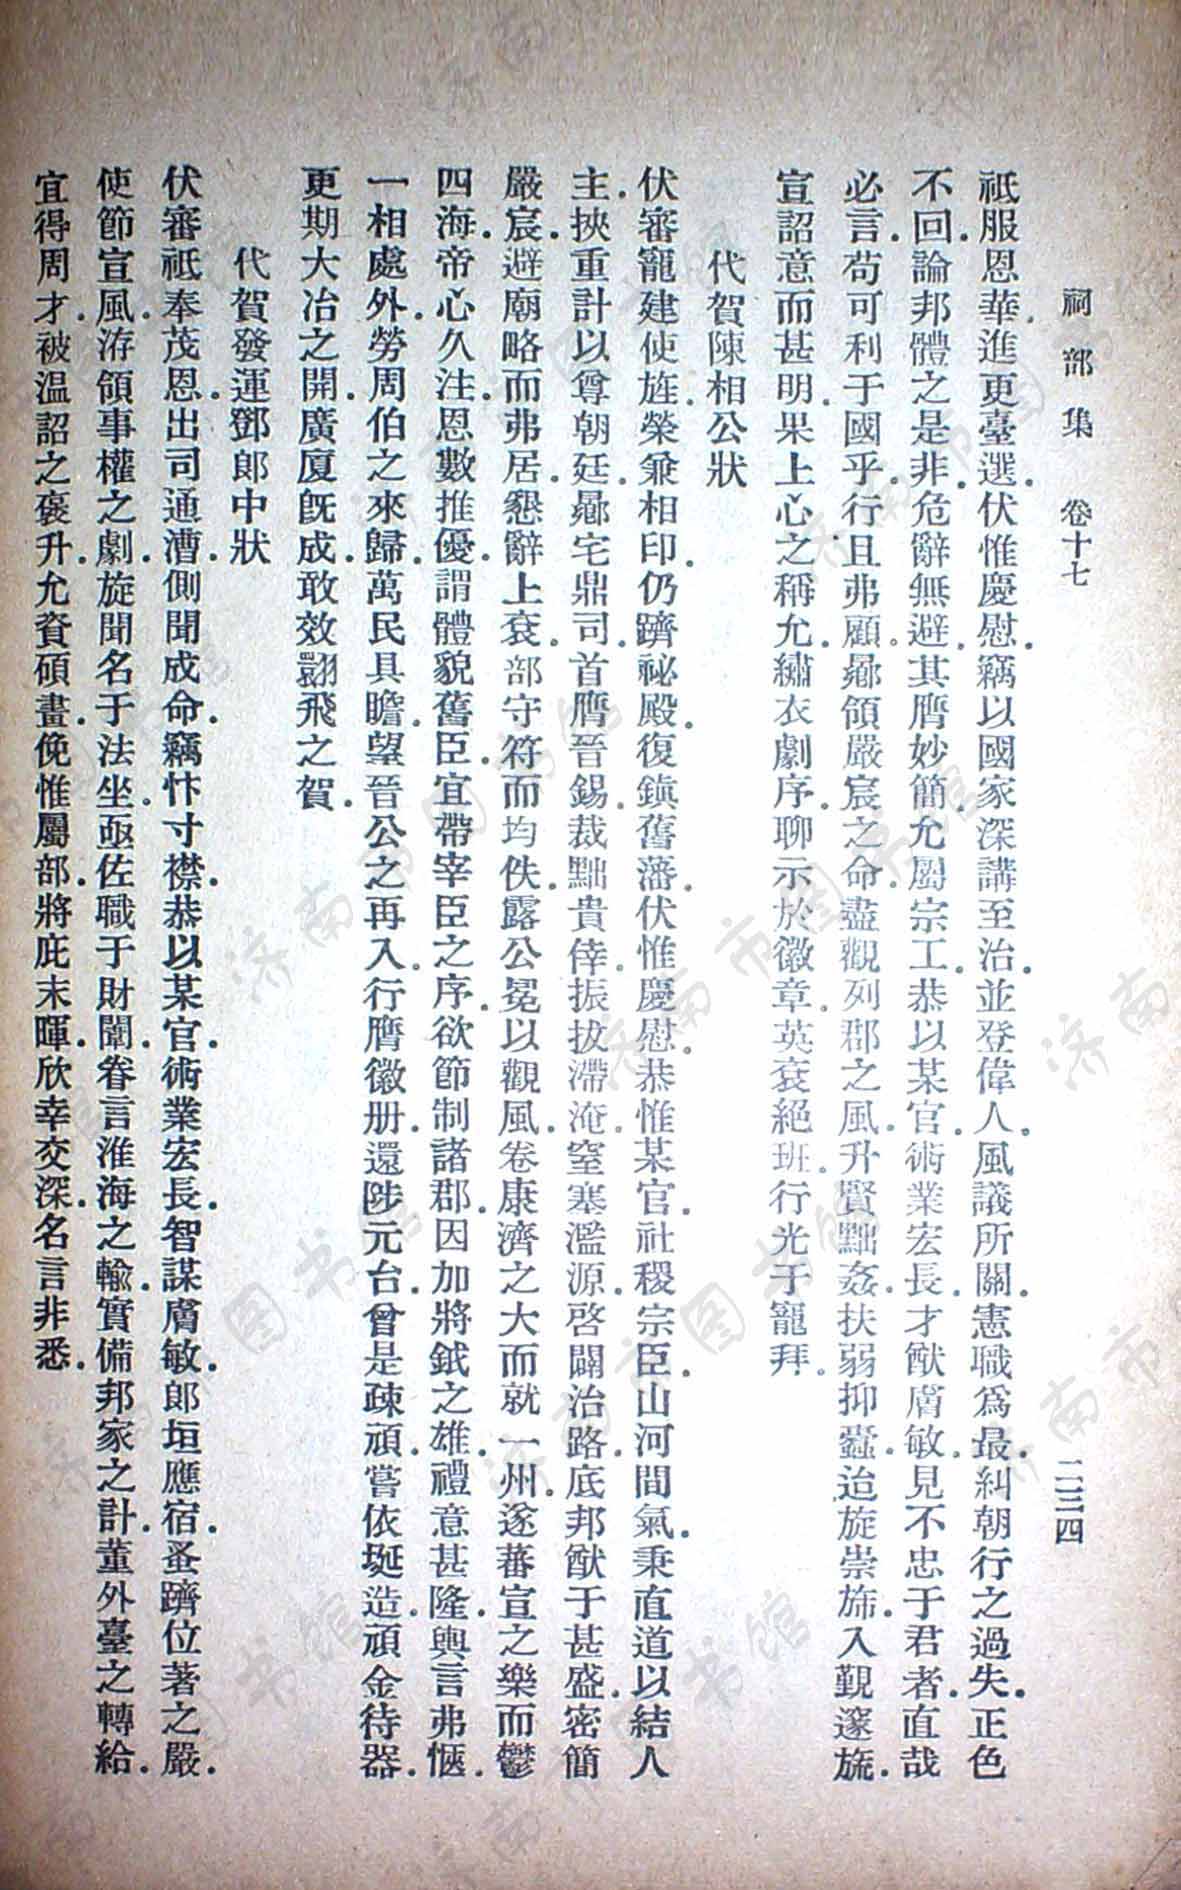 祠部集　卷十七　二三四
祇服恩華進更臺選.伏惟慶慰.竊以國家深講至治.並登偉人.風議所關.憲職爲最.糾朝行之過失.正色
不回.論邦體之是非.危辭無避.其膺妙簡.允屬宗工.恭以某官.術業宏長.才猷膚敏.見不忠于君者.直哉
必言.苟可利于國乎.行且弗顧.曏領嚴宸之命.盡觀列郡之風.升賢黜姦.扶弱抑蠹.迨旋崇斾.入覲邃旒.
宣詔意而甚明.果上心之稱允.繡衣劇序.聊示於徽章.英袞絕班.行光于寵拜.
代賀陳相公狀
伏審寵建使旌.榮兼相印.仍躋祕殿.復鎭舊藩.伏惟慶慰.恭惟某官.社稷宗臣.山河間氣.秉直道以結人
主.挾重計以尊朝廷.曏宅鼎司.首膺晉錫.裁黜貴倖.振拔滯淹.窒塞濫源.啓闢治路.底邦猷于甚盛.密簡
嚴宸.避廟略而弗居.懇辭上袞.部守符而均佚.露公冕以觀風.卷康濟之大而就一州.遂蕃宣之樂而鬱
四海.帝心久注.恩數推優.謂體貌舊臣.宜帶宰臣之序.欲節制諸郡.因加將鉞之雄.禮意甚隆.輿言弗愜.
一相處外.勞周伯之來歸.萬民具瞻.望晉公之再入.行膺徽册.還陟元台.曾是疎頑.嘗依埏造.頑金待器.
更期大冶之開.廣厦旣成.敢效翾飛之賀.
代賀發運鄧郎中狀
伏審祗奉茂恩.出司通漕.側聞成命.竊忭寸襟.恭以某官術業宏長.智謀膚敏.郎垣應宿.蚤躋位著之嚴.
使節宣風.洊領事權之劇.旋聞名于法坐.亟佐職于財闈.眷言淮海之輸.實備邦家之計.董外臺之轉給.
宜得周才.被温詔之褒升.允資碩畫.俛惟屬部.將庇末暉.欣幸交深.名言非悉.